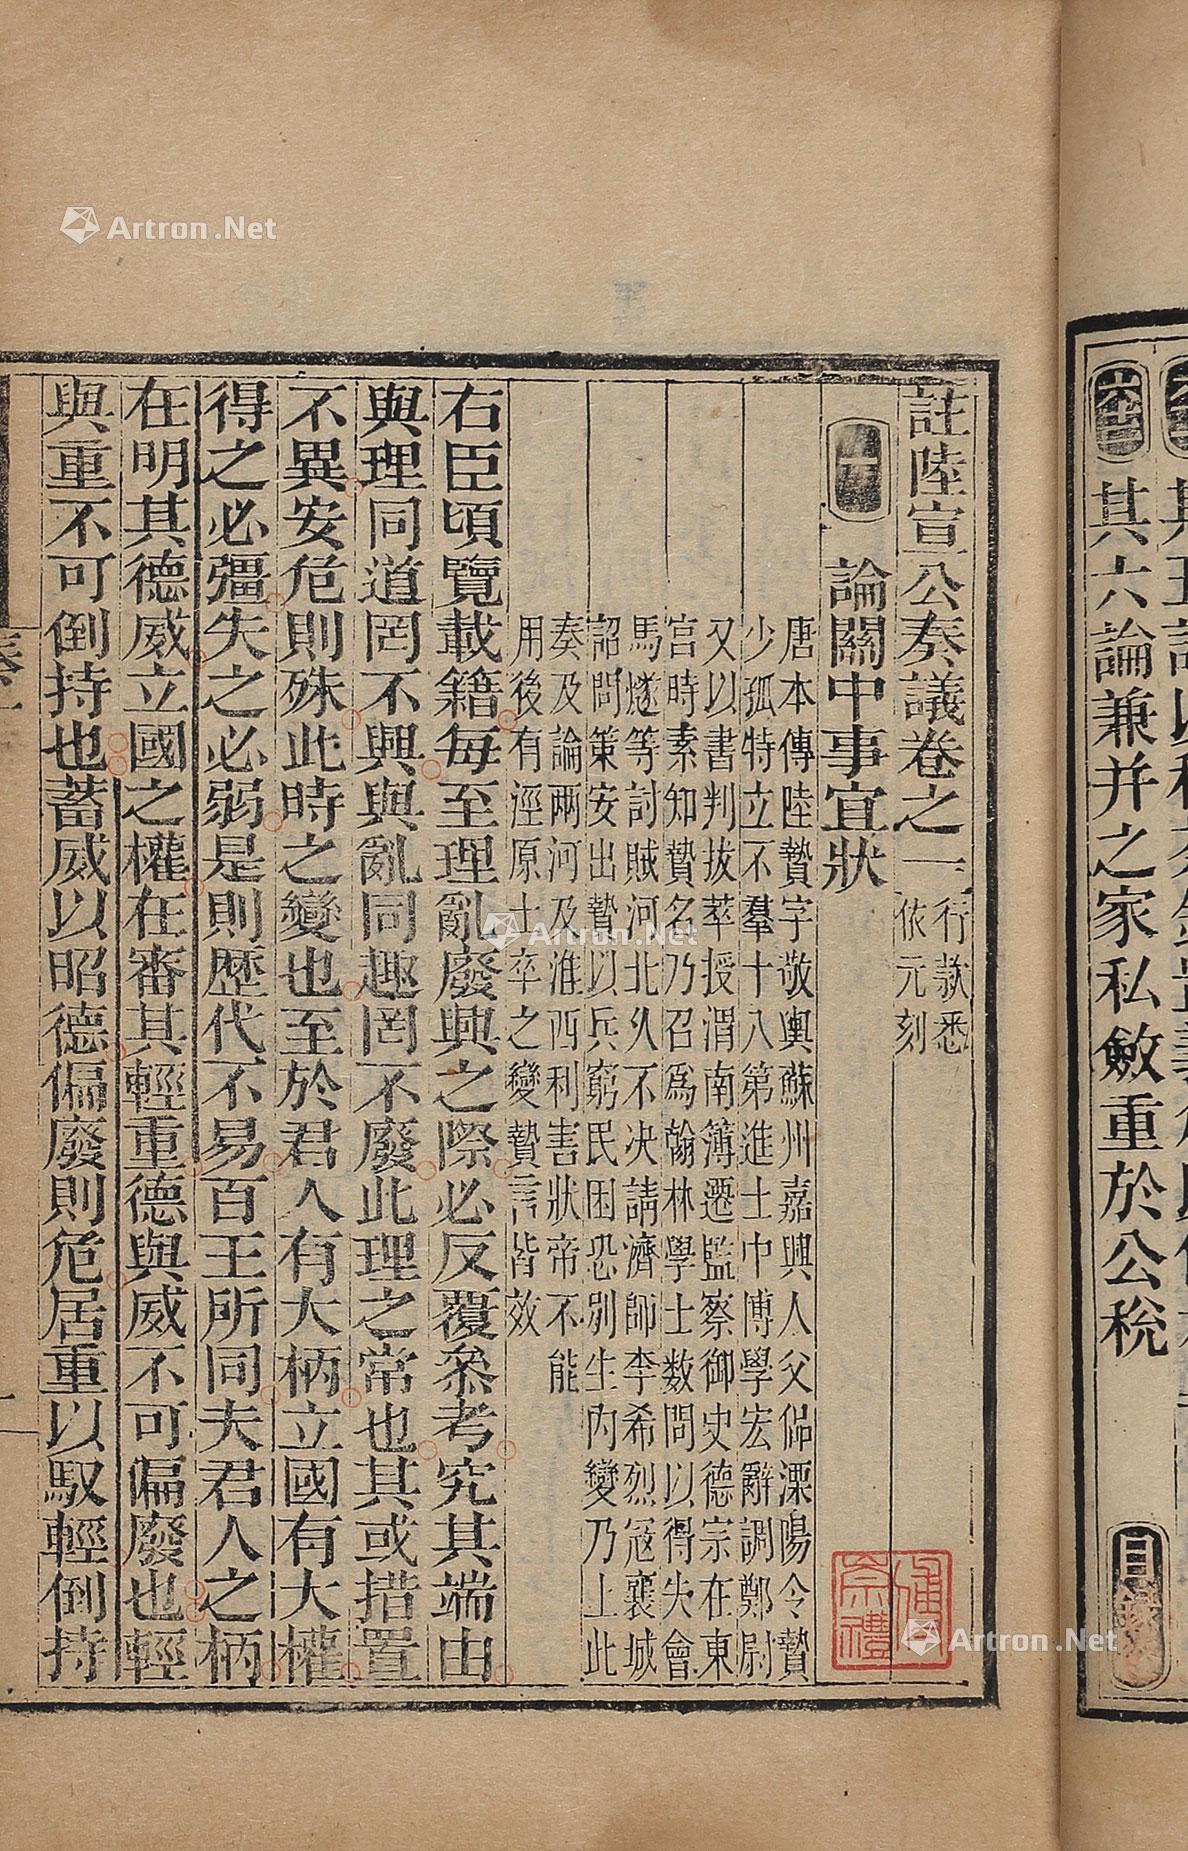 其六論兼并之家私斂重於公稅
目錄
註陸宣公奏議卷之一
行款悉
依元刻
一 論關中事宜狀
唐本傳陸贄字敬輿蘇州嘉興人父侃溧陽令贄
少孤特立不羣十八第進士中博學宏辭調鄭尉
又以書判拔萃授渭南簿遷監察御史德宗在東
宮時素知贄名乃召爲翰林學士數問以得失會
馬燧等討賊河北久不决請濟師李希烈寇襄城
詔問策安出贄以兵窮民困恐別生內變乃上此
奏及論兩河及淮西利害狀帝不能
用後有涇原士卒之變贄言皆效
右臣頃覽載籍每至理亂廢興之際必反覆叅考究其端由
與理同道罔不興與亂同趣罔不廢此理之常也其或措置
不異安危則殊此時之變也至於君人有大柄立國有大權
得之必彊失之必弱是則歷代不易百王所同夫君人之柄
在明其德威立國之權在審其輕重德與威不可偏廢也輕
與重不可倒持也蓄威以昭德偏廢則危居重以馭輕倒持
Artron.Net
Artron.Net
Artron.Net